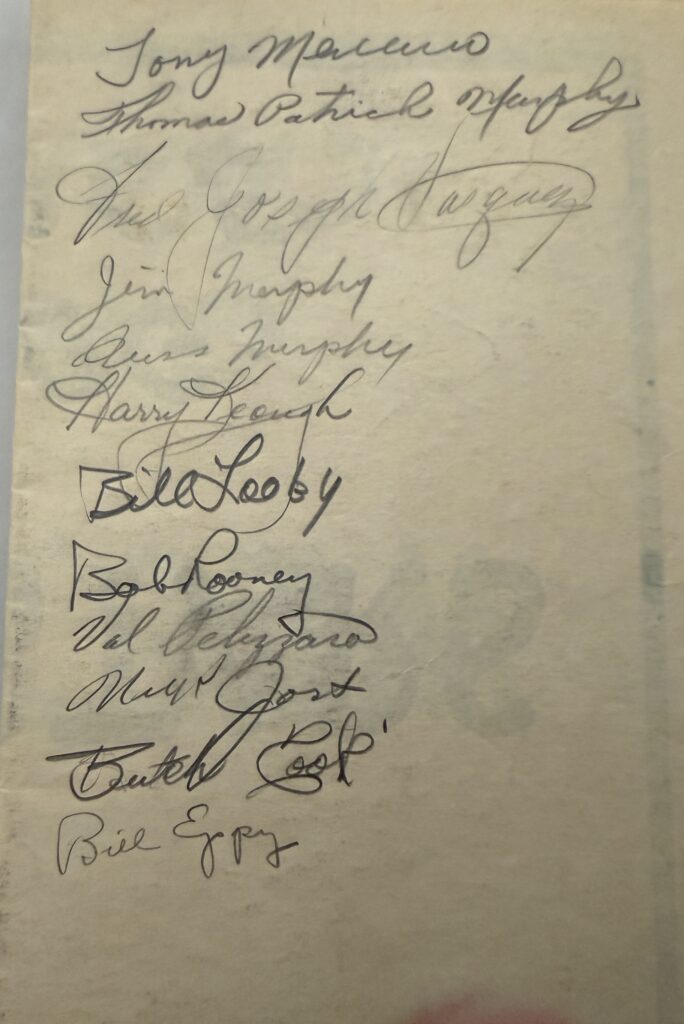 Tony
Thomas Patrick Murphy
Joseph Vasquez
Jim Murphy
Russ Murphy
Harry Keough
Bill Looby
Bob Rooney
Val Pelizzaro
Jost
Butch Cook
Bill Eppy